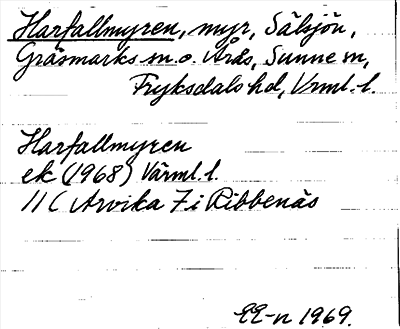 Harfallmyren, myr, Sälsjön,
Gräsmarks sn o. Årås, Sunne sn,
Fryksdals hd, Vrml. l.
Harfallmyren
ek (1968) Värml. l.
11 C Arvika 7 i Ribbenäs
EE-n 1969.